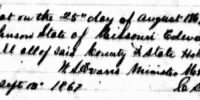 at on the 25th day of August 186
hnson State of Missouri Edwa
ll all of said County & State Hol
W. S. Evans Minister
Sept 10th 1867